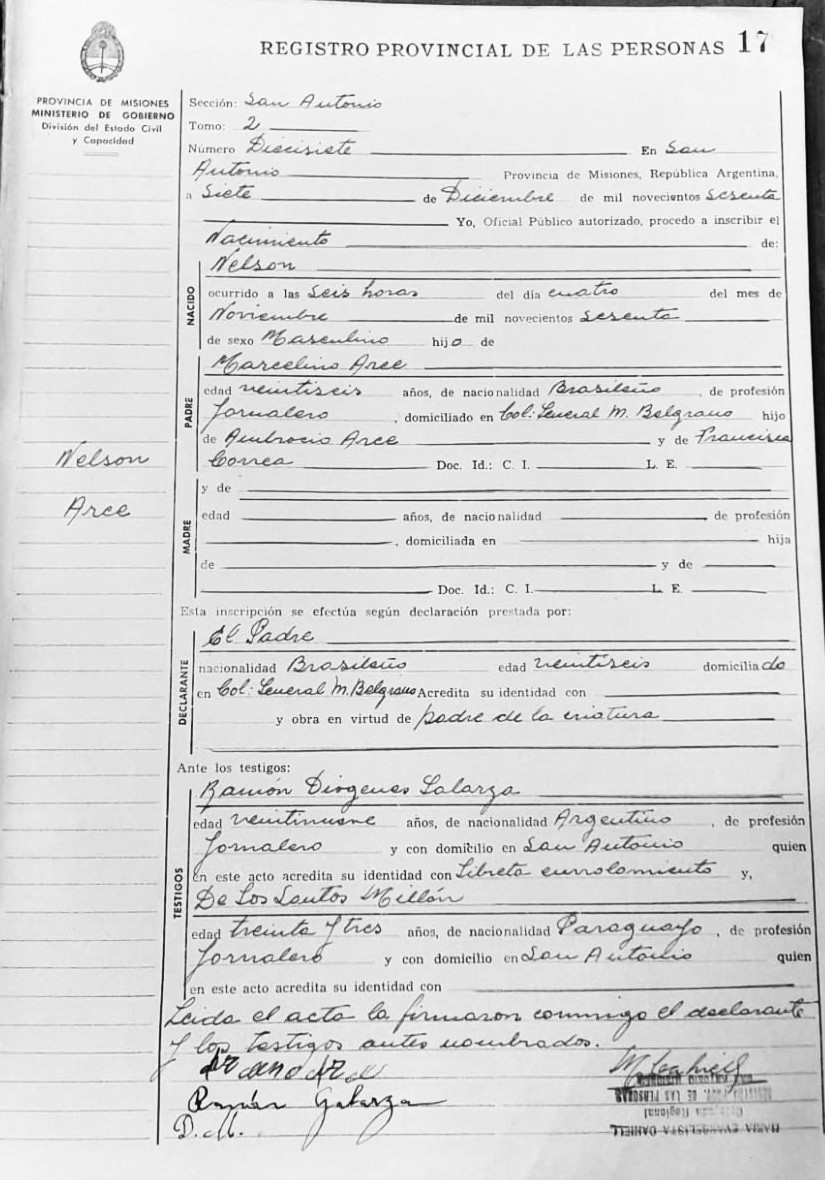 REGISTRO PROVINCIAL DE LAS PERSONAS 17
PROVINCIA DE MISIONES
MINISTERIO DE GOBIERNO
División del Estado Civil
y Capacidad
Sección: San Antonio
Tomo: 2
Número Diecisiete En San
Antonio Provincia de Misiones, República Argentina,
a Siete de Diciembre de mil novecientos Sesenta
Yo, Oficial Público autorizado, procedo a inscribir el
Nacimiento de:
NACIDO
Nelson
ocurrido a las Seis horas del día cuatro del mes de
Noviembre de mil novecientos Sesenta
de sexo Masculino hijo de
PADRE
Marcelino Arce
edad veintiseis años, de nacionalidad Brasileño, de profesión
Jornalero, domiciliado en Col: General M. Belgrano hijo
de Ambrocio Arce y de Francisca
Correa Doc. Id.: C. I. L. E.
Nelson
Arce
MADRE
y de
edad años, de nacionalidad , de profesión
, domiciliada en hija
de y de
Doc. Id.: C. I. L. E.
Esta inscripción se efectúa según declaración prestada por:
DECLARANTE
El Padre
nacionalidad Brasileño edad veintiseis domiciliado
en Col: General M. Belgrano Acredita su identidad con
y obra en virtud de padre de la criatura
Ante los testigos:
TESTIGOS
Ramón Diogenes Galarza
edad veintinueve años, de nacionalidad Argentino, de profesión
Jornalero y con domicilio en San Antonio quien
en este acto acredita su identidad con Libreta enrrolamiento y,
De Los Santos Millán
edad treinta y tres años, de nacionalidad Paraguayo, de profesión
Jornalero y con domicilio en San Antonio quien
en este acto acredita su identidad con
Leida el acta la firmaron conmigo el declarante
y los testigos antes nombrados.
Ramón Galarza
D. M.
MARIA EVANGELISTA DANIELL